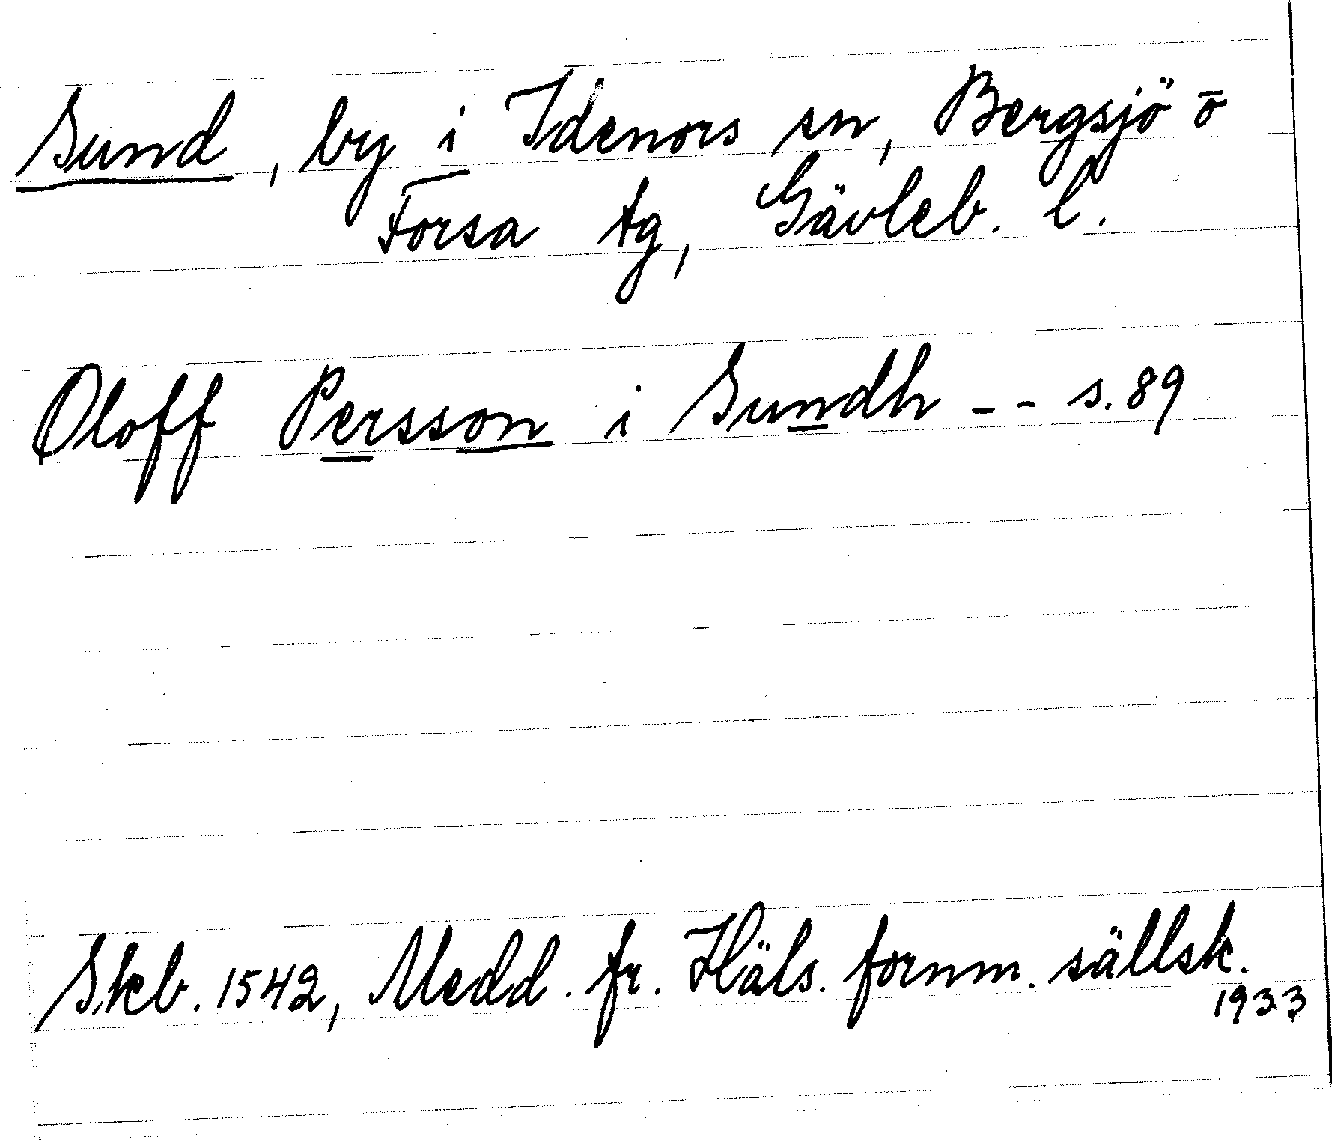 Sund, by i Idenors sn, Bergsjö ō
Forsa tg, Gävleb. l.
Oloff Persson i Sundh -- s. 89
Skb. 1542, Medd. fr. Häls. fornm. sällsk.
1933